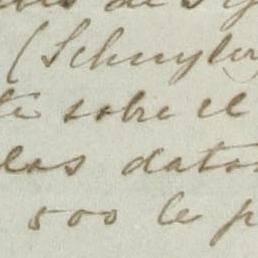 de
(Schuyler
sobre el
las datos
500 le p